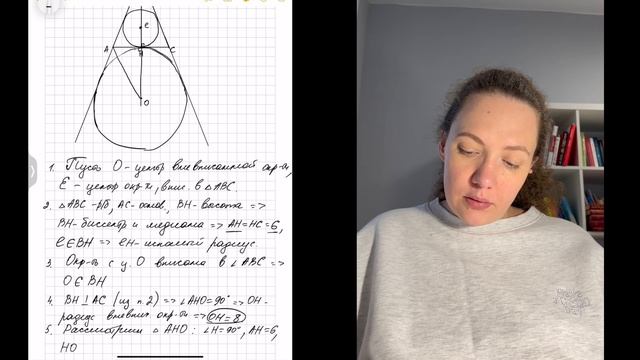 E
A
C
H
O
1. Пусть O - центр вневписанной окр-ти,
E - центр окр-ти, впис. в △ABC.
2. △ABC - р/б, AC - основ., BH - высота =>
BH - биссектр и медиана => AH = HC = 6,
E ∈ BH => EH - искомый радиус.
3. Окр-ть с ц. O вписана в ∠ABC =>
O ∈ BH
4. BH ⊥ AC (из п.2) => ∠AHO = 90° => OH -
радиус вневпис. окр-ти => OH = 8
5. Рассмотрим △AHO: ∠H = 90°, AH = 6,
HO